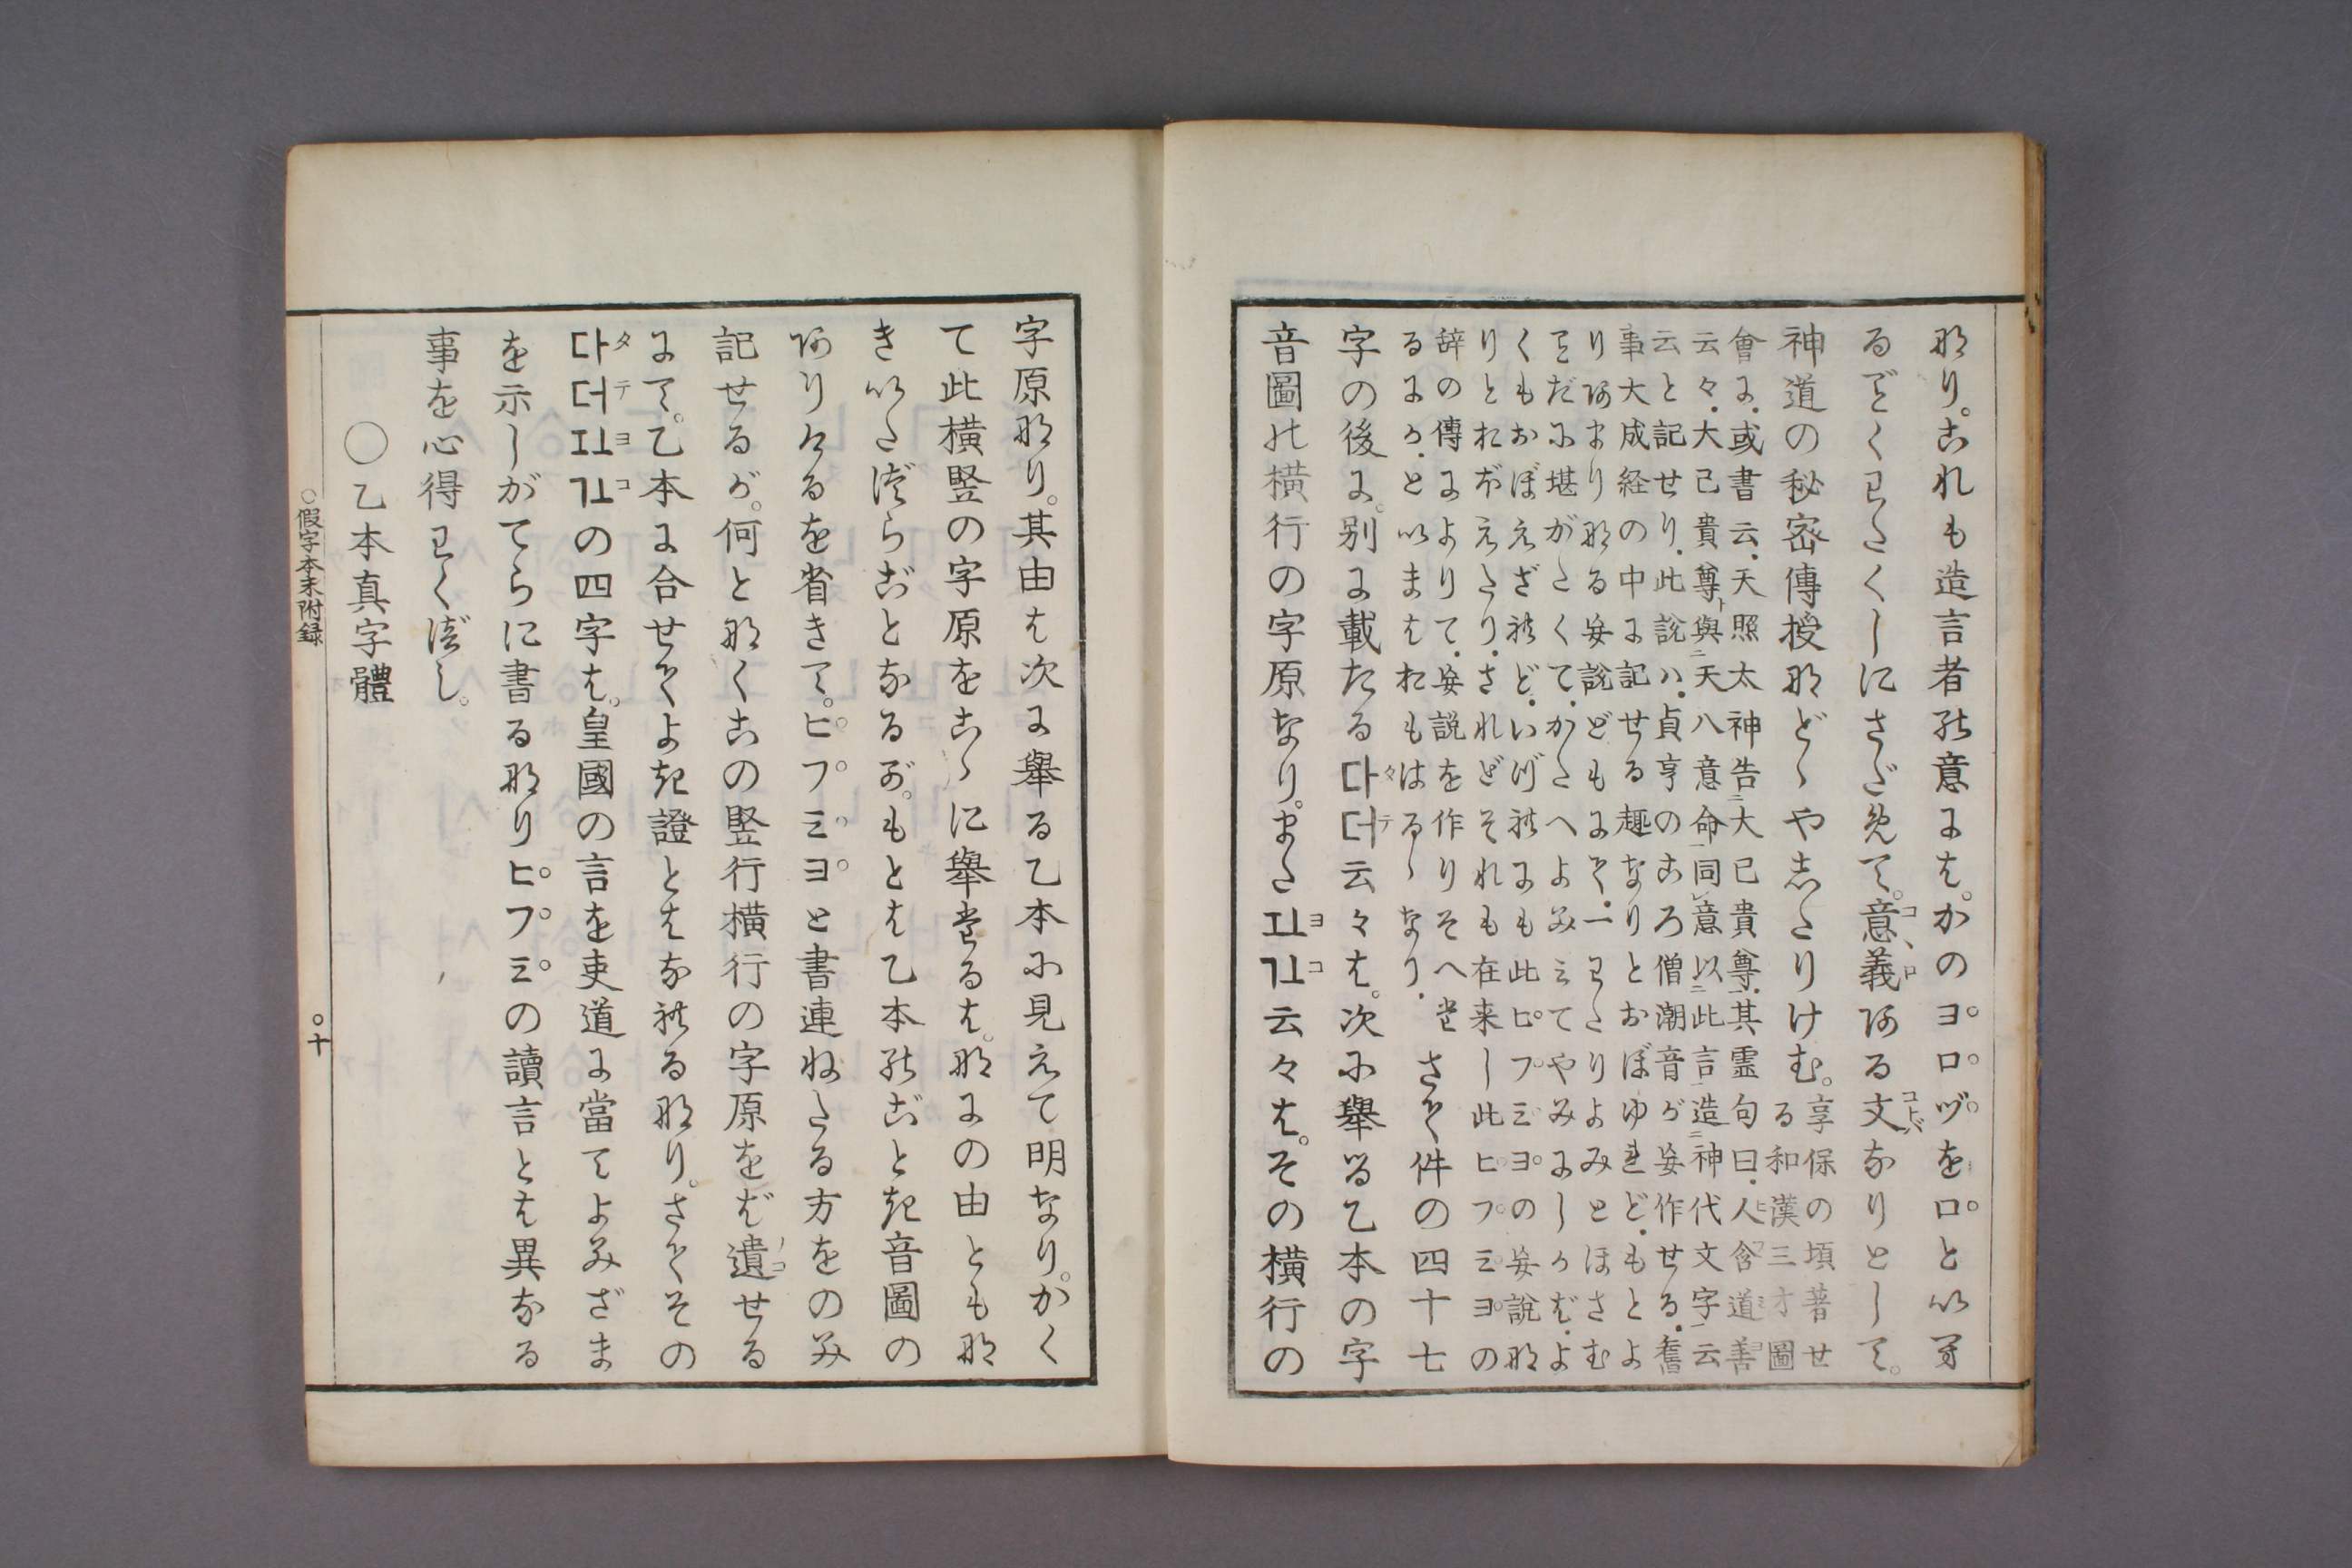 なり。これも造言者の意には。かのヨ。ロ。ヅ。をロ。と以て
るごとくわたくしにさだめて。意義ある文なりとして。
神道の秘密傳授などゝやしたりけむ。享保の頃著せ
る和漢三才圖
會に.或書云.天照太神告大己貴尊.其霊句曰.人含道善
云々.大己貴尊與天八意命同意以此言造神代文字云
云と記せり.此説ハ.貞享のころ僧潮音が妄作せる.舊
事大成経の中に記せる趣なりとおぼゆれど.もとよ
りあまりなる妄説どもにて.一わたりよみとほさむ
てだに堪がたくて.かたへよみミてやみにしかば.よ
くもおぼえざれど.いづれにも此ヒ。フ。ミ。ヨ。の妄説な
りとおぼえたり.されどそれも在来し此ヒフ。ミ。ヨ。の
辞の傳によりて.妄説を作りそへ
るにか.と以まはおもはるゝなり.さて件の四十七
字の後に。別に載たる다더云々は。次に舉る乙本の字
音圖の横行の字原なり。また요고云々は。その横行の
字原なり。其由は次に舉る乙本に見えて明なり。かく
て此横竪の字原をこゝに舉たるは。なにの由ともな
きいたづらごとなるが。もとは乙本のごとき音圖の
ありけるを省きて。ヒ。フ。ミ。ヨ。と書連ねたる方をのみ
記せるが。何となくこの竪行横行の字原をば遺せる
にて。乙本に合せてよき證とはなれるなり。さてその
다더요고の四字は。皇國の言を吏道に當てよみざま
を示しがてらに書るなりヒ。フ。ミ。の讀言とは異なる
事を心得わくべし。
〇乙本真字體
○假字本末附録
○十